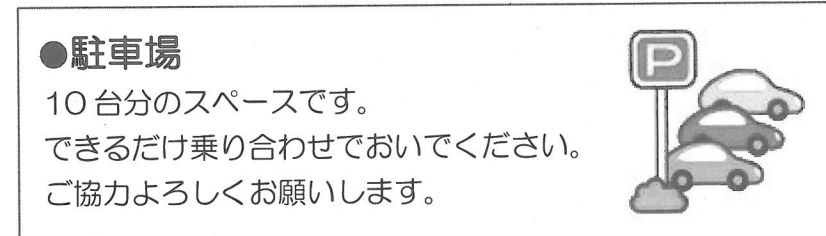 ●駐車場
10台分のスペースです。
できるだけ乗り合わせでおいでください。
ご協力よろしくお願いします。
P